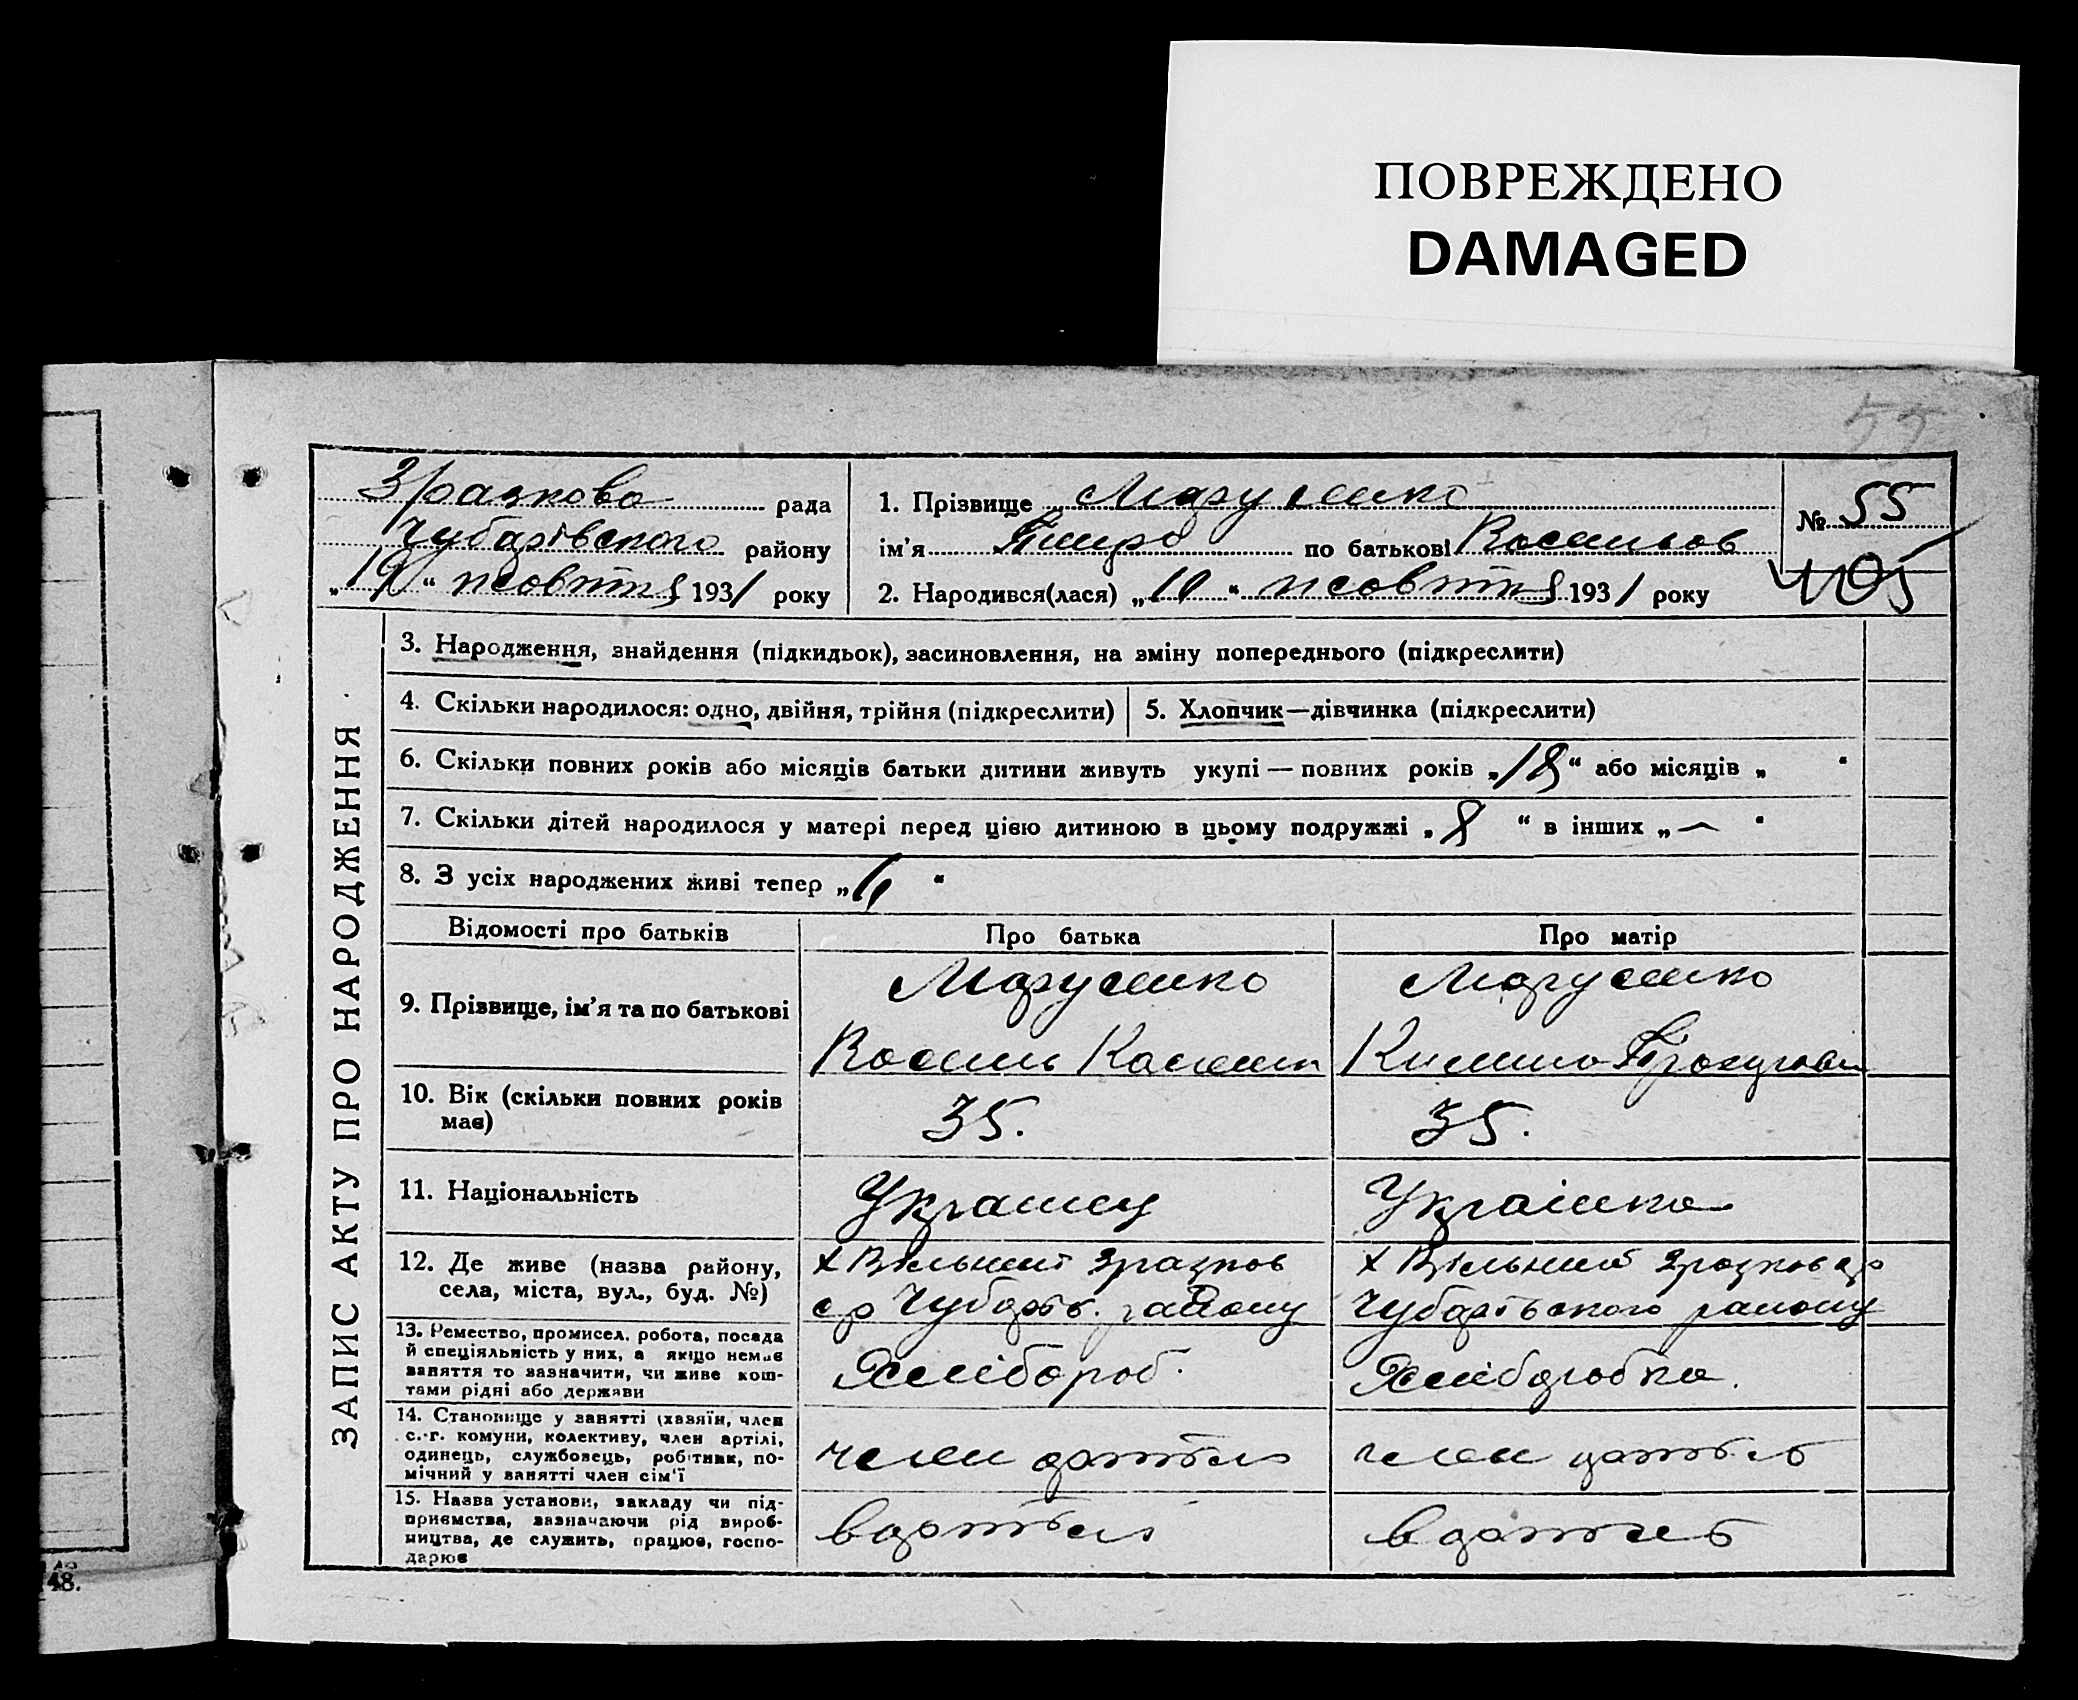 ПОВРЕЖДЕНО
DAMAGED
55
Зразкова рада
Чубарівського району
„19“ жовтня 1931 року
1. Прізвище Марусенко
ім'я по батькові Васильов
2. Народився(лася) „10“ жовтня 1931 року
№ 55
405
ЗАПИС АКТУ ПРО НАРОДЖЕННЯ
3. Народження, знайдення (підкидьок), засиновлення, на зміну попереднього (підкреслити)
4. Скільки народилося: одно, двійня, трійня (підкреслити)
5. Хлопчик—дівчинка (підкреслити)
6. Скільки повних років або місяців батьки дитини живуть укупі — повних років „18“ або місяців „ “
7. Скільки дітей народилося у матері перед цією дитиною в цьому подружжі „8 “ в інших „— “
8. З усіх народжених живі тепер „ “
Відомості про батьків
Про батька
Про матір
9. Прізвище, ім'я та по батькові
Марусенко
Василь
Марусенко
10. Вік (скільки повних років
має)
35.
35.
11. Національність
Украінец
Украінка
12. Де живе (назва району,
села, міста, вул., буд. №)
х Вільний Зразков
ср Чубарів. району
х Вільний Зразков ср
Чубарівського району
13. Ремество, промисел, робота, посада
й спеціяльність у них, а якщо немає
заняття то зазначити, чи живе кош-
тами рідні або держави
Хлібороб.
Хліборобка.
14. Становище у занятті (хазяїн, член
с.-г. комуни, колективу, член артілі,
одинець, службовець, робітник, по-
мічний у занятті член сім'ї
член артіли
член артілі
15. Назва установи, закладу чи під-
приємства, зазначаючи рід вироб-
ництва, де служить, працює, госпо-
дарює
в артілі
в артілі
48.